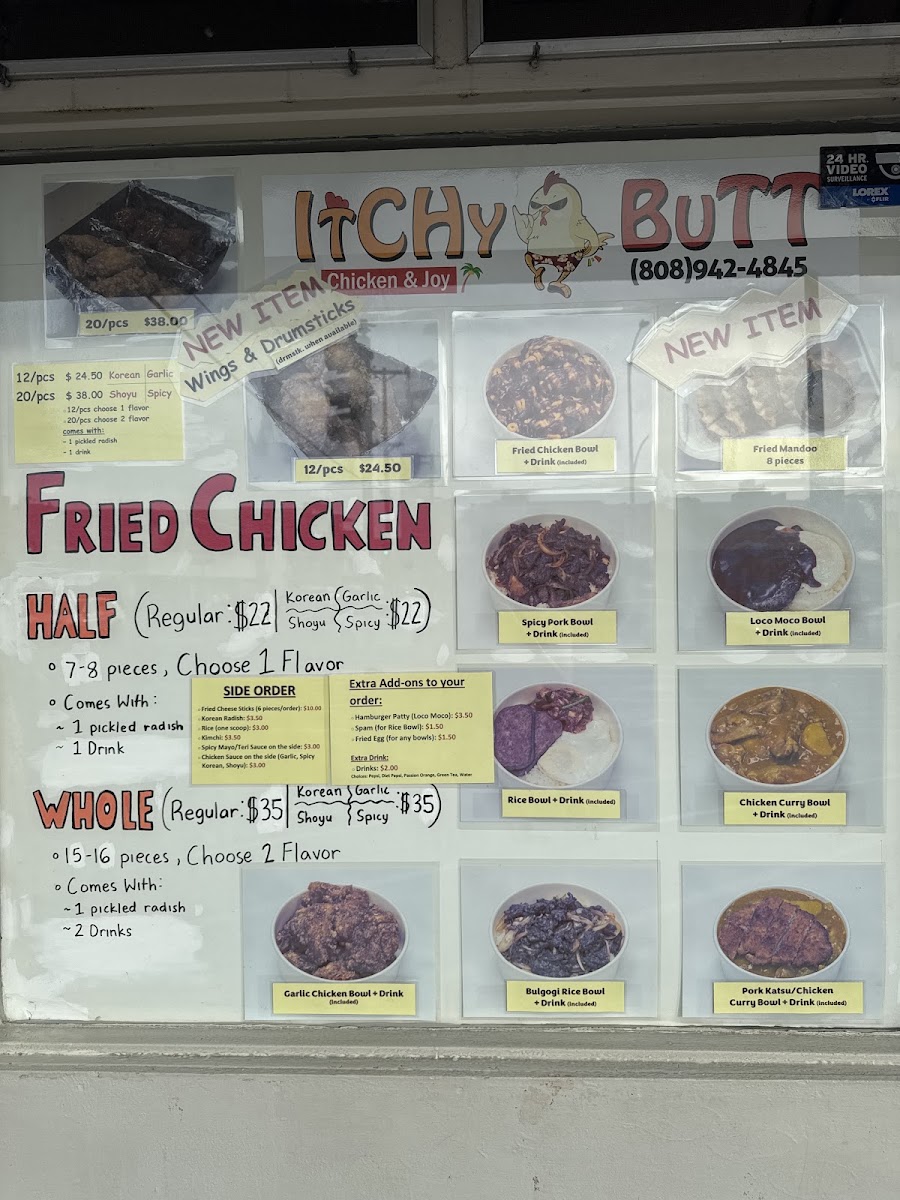 ItCHy BuTT
Chicken & Joy
(808)942-4845
24 HR.
VIDEO
SURVEILLANCE
LOREX
FLIR
20/pcs $38.00
NEW ITEM
Wings & Drumsticks
(drmstk. when available)
12/pcs $ 24.50 Korean Garlic
20/pcs $ 38.00 Shoyu Spicy
-12/pcs choose 1 flavor
-20/pcs choose 2 flavor
comes with:
~ 1 pickled radish
~ 1 drink
12/pcs $24.50
Fried Chicken Bowl
+ Drink (included)
NEW ITEM
Fried Mandoo
8 pieces
FRIED CHICKEN
HALF (Regular: $22 | Korean Garlic Shoyu Spicy : $22)
7-8 pieces, Choose 1 Flavor
Comes With:
~ 1 pickled radish
~ 1 Drink
Spicy Pork Bowl
+ Drink (included)
Loco Moco Bowl
+ Drink (included)
SIDE ORDER
-Fried Cheese Sticks (6 pieces/order): $10.00
-Korean Radish: $3.50
-Rice (one scoop): $3.00
-Kimchi: $3.50
-Spicy Mayo/Teri Sauce on the side: $3.00
-Chicken Sauce on the side (Garlic, Spicy
Korean, Shoyu): $3.00
Extra Add-ons to your
order:
-Hamburger Patty (Loco Moco): $3.50
-Spam (for Rice Bowl): $1.50
-Fried Egg (for any bowls): $1.50
Extra Drink:
-Drinks: $2.00
Choices: Pepsi, Diet Pepsi, Passion Orange, Green Tea, Water
Rice Bowl + Drink (included)
Chicken Curry Bowl
+ Drink (included)
WHOLE (Regular: $35 | Korean Garlic Shoyu Spicy : $35)
15-16 pieces, Choose 2 Flavor
Comes With:
~ 1 pickled radish
~ 2 Drinks
Garlic Chicken Bowl + Drink
(included)
Bulgogi Rice Bowl
+ Drink (included)
Pork Katsu/Chicken
Curry Bowl + Drink (included)